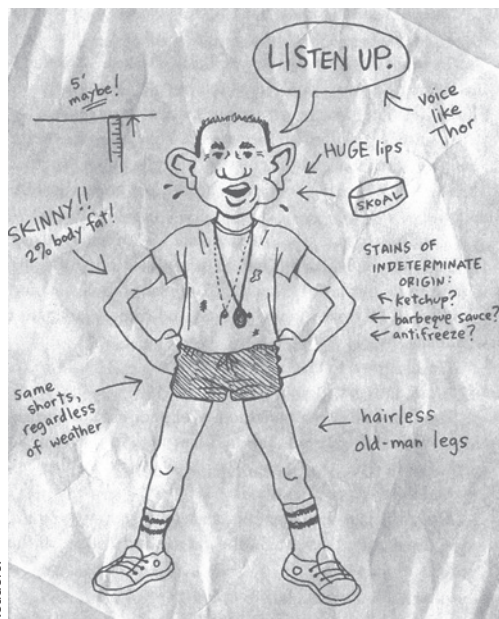 5'
maybe!
LISTEN UP.
voice
like
Thor
HUGE lips
SKOAL
SKINNY!!
2% body fat!
STAINS OF
INDETERMINATE
ORIGIN:
ketchup?
barbeque sauce?
antifreeze?
same
shorts,
regardless
of weather
hairless
old-man legs